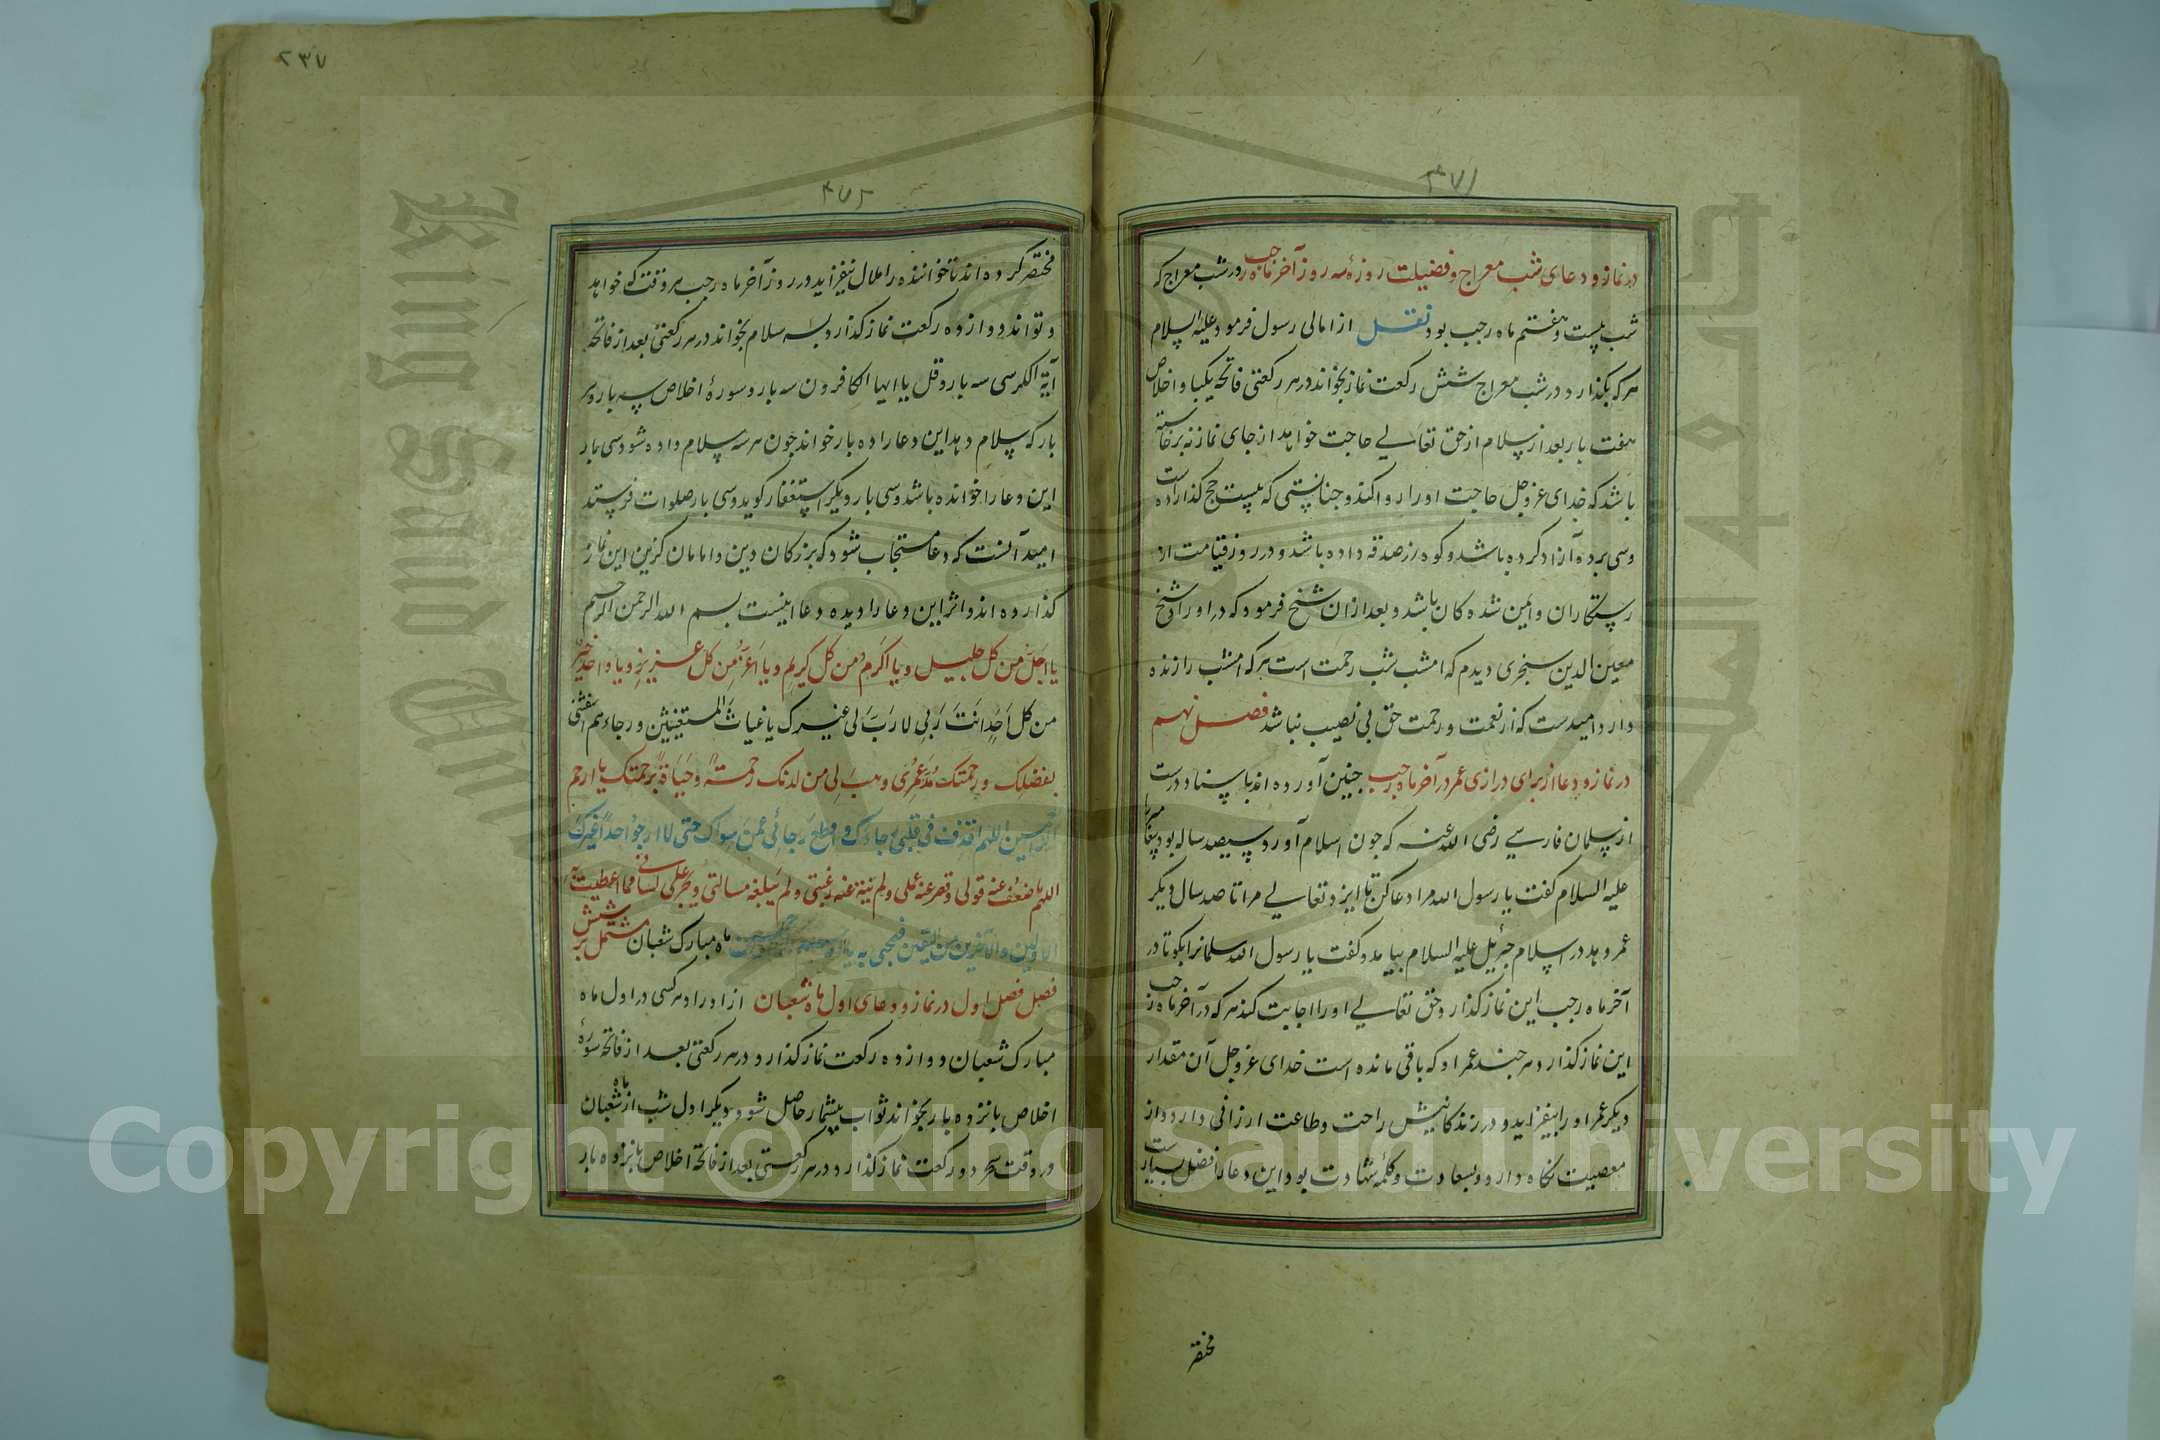 ٤٧١
در نماز و دعای شب معراج و فضیلت روزهٔ سه روز آخر ماه رجب در شب معراج که
شب بیست و هفتم ماه رجب بود نقل از امالی رسول فرمود علیه السلام
هر که بگذارد در شب معراج شش رکعت نماز بخواند در هر رکعتی فاتحه یکبار و اخلاص
هفت بار بعد از سلام از حق تعالی حاجت خواهد از جای نماز نه برخاسته
باشد که خدای عز و جل حاجت او را روا کند و چنانستی که بیست حج گذارده است
و سی برده آزاد کرده باشد و کوه زر صدقه داده باشد و در روز قیامت از
رستکاران و ایمن شده کان باشد و بعد از ان شیخ فرمود که در اوراد شیخ
معین الدین سنجری دیدم که امشب شب رحمت است هر که امشب را زنده
دارد امیدست که از نعمت و رحمت حق بی نصیب نباشد فصل نهم
در نماز و دعا از برای درازی عمر در آخر ماه رجب چنین آورده اند با سناد درست
از سلمان فارسی رضی الله عنه که چون اسلام آورد سیصد ساله بود پیغامبر را
علیه السلام کفت یا رسول الله مرا دعا کن تا ایزد تعالی مرا تا صد سال دیگر
عمر دهد در اسلام جبرئیل علیه السلام بیامد و کفت یا رسول الله سلمانرا بکو تا در
آخر ماه رجب این نماز کذارد حق تعالی او را اجابت کند هر که در آخر ماه رجب
این نماز کذارد هر چند عمر او که باقی مانده است خدای عز و جل آن مقدار
دیکر عمر او را بیفزاید و در زندکانیش راحت و طاعت ارزانی دارد و از
معصیت نکاه دارد و بسعادت و کلمه شهادت بود این دعا را فضل بسیارست
مختصر
٢٣٧
٤٧٢
مختصر کرده اند تا خواننده را ملال نیفزاید در روز آخر ماه رجب هر وقت که خواهد
و تواند دوازده رکعت نماز کذارد بسه سلام بخواند در هر رکعتی بعد از فاتحه
آیة الکرسی سه بار و قل یا ایها الکافرون سه بار و سورهٔ اخلاص سه بار و هر
بار که سلام دهد این دعا را ده بار خواند چون هر سه سلام داده شود سی بار
این دعا را خوانده باشد و سی بار دیگر استغفار کوید و سی بار صلوات فرستد
امید آنست که دعا مستجاب شود که بزرکان دین و امامان کزین این نماز
کذارده اند و اثر این دعا را دیده دعا اینست بسم الله الرحمن الرحیم
یا اجل من کل جلیل و یا اکرم من کل کریم و یا اعز من کل عزیز و یا واحد خیر
من کل احد انت ربی لا رب لی غیرک یا غیاث المستغیثین و رجاءهم اغثنی
بفضلک و رحمتک مد عمری و هب لی من لدنک رحمة و حیاة برحمتک یا ارحم
الراحمین اللهم اقذف فی قلبی رجاءک و اقطع رجائی عمن سواک حتی لا ارجو احدا غیرک
اللهم ما ضعف عنه قولی و قصر عنه عملی و لم تنته عنه رغبتی و لم تبلغه مسألتی و لم یجر علی لسانی مما اعطیت
الاولین و الآخرین من الیقین فخصنی به یا ارحم الراحمین ماه مبارک شعبان مشتمل بر شش
فصل فصل اول در نماز و دعای اول ماه شعبان از اوراد هر کسی در اول ماه
مبارک شعبان دوازده رکعت نماز کذارد و در هر رکعتی بعد از فاتحه سورهٔ
اخلاص پانزده بار بخواند ثواب بیشمار حاصل شود دیکر اول شب از ماه شعبان
در وقت سحر دو رکعت نماز کذارد در هر رکعتی بعد از فاتحه اخلاص پانزده بار
King Saud University
Copyright © King Saud University